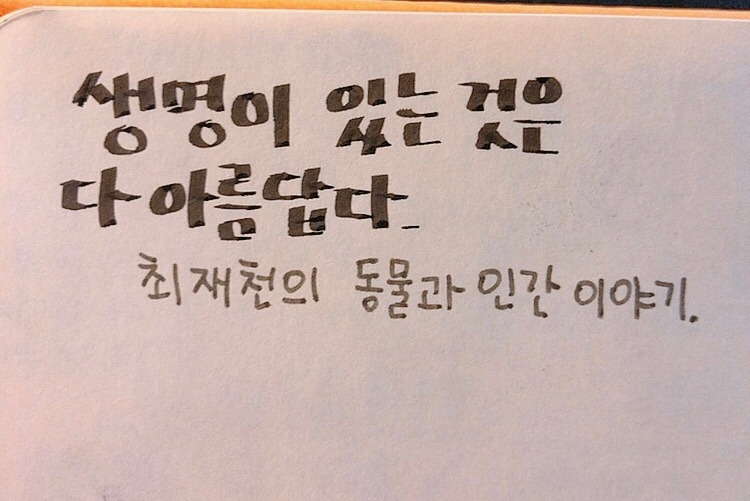 생명이 있는 것은
다 아름답다_
최재천의 동물과 인간 이야기.